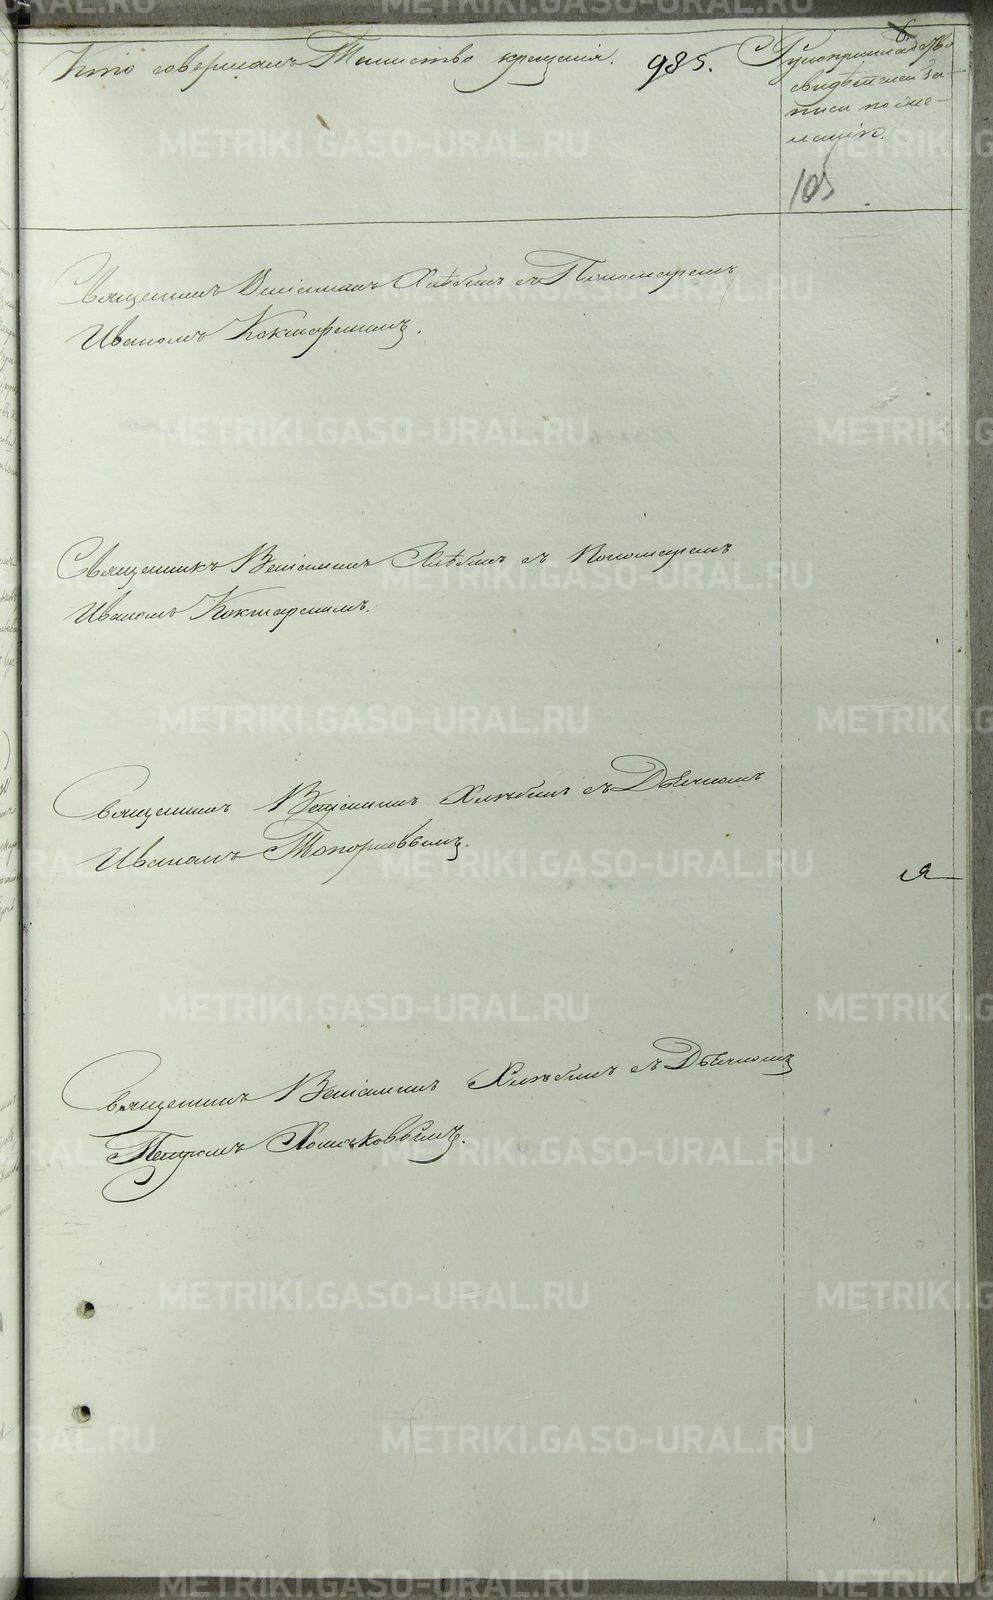 Кто совершалъ Таинство крещенія.
985.
6
Рукоприкладство
свидѣтелей за-
писи по же-
ланію.
105
Священникъ Веніаминъ Хлѣбинъ съ Пономаремъ
Иваномъ Кокшарскимъ.
Священникъ Веніаминъ Хлѣбинъ съ Пономаремъ
Иваномъ Кокшарскимъ.
Священникъ Веніаминъ Хлѣбинъ съ Дьячкомъ
Иваномъ Топорковымъ.
Священникъ Веніаминъ Хлѣбинъ съ Дьячкомъ
Петромъ Хомяковымъ.
METRIKI.GASO-URAL.RU